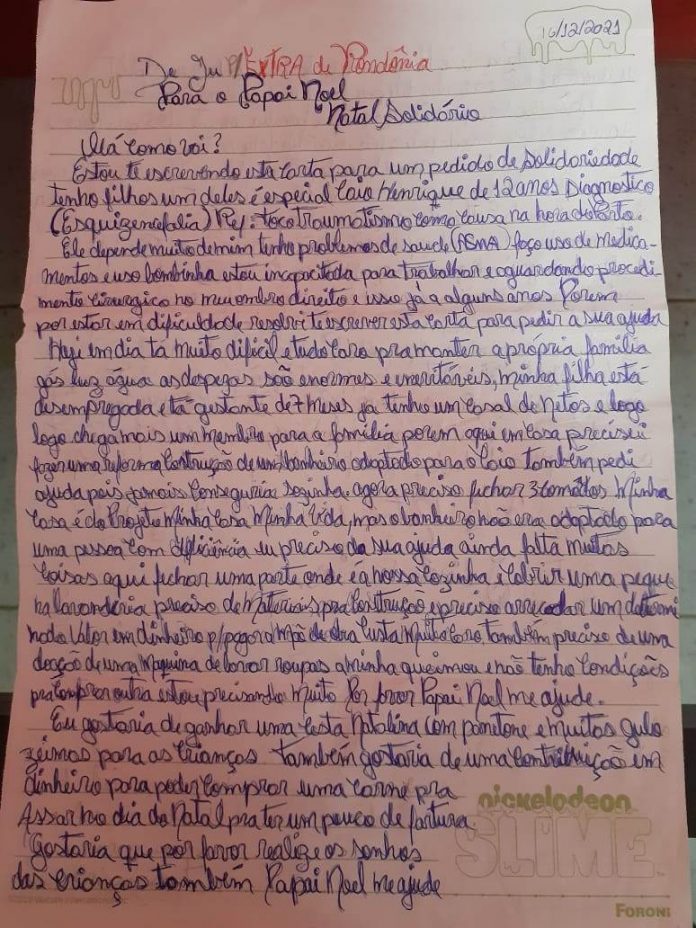 16/12/2021
De Ju P/ EXTRA de Rondônia
Para o Papai Noel
Natal Solidário
Olá como vai?
Estou te escrevendo esta carta para um pedido de solidariedade
tenho filhos um deles é especial Caio Henrique de 12 anos Diagnostico
(Esquizencefalia) Ref: tocotraumatismo como causa na hora do Parto.
Ele depende muito de mim tenho problemas de saude (ASMA) faço uso de medica-
mentos e uso bombinha estou incapacitada para trabalhar e aguardando procedi-
mento cirurgico no meu membro direito e isso já a alguns anos Porem
por estar em dificuldade resolvi te escrever esta carta para pedir a sua ajuda
Hoje em dia tá muito dificil e tudo caro pra manter a própria familia
gás luz água as despezas são enormes e inevitáveis, minha filha está
desempregada e tá gestante de 7 meses ja tenho um casal de Netos e logo
logo chega mais um membro para a familia porem aqui em casa precisei
fazer uma reforma Costrução de um banheiro adaptado para o Caio também pedi
ajuda pois jamais conseguiria sozinha. agora preciso fichar 3 comodos Minha
Casa é do Projeto Minha Casa Minha Vida, mas o banheiro não era adaptado para
uma pessoa com deficiência eu preciso da sua ajuda ainda falta muitas
Coisas aqui fichar uma parte onde é a nossa Cozinha e Cobrir uma peque
na lavanderia preciso de Materiais pra Costrução e preciso arrecadar um determi
nado Valor em dinheiro p/pagar a Mão de obra Custa Muito Caro, também preciso de uma
doação de uma Maquina de lavar roupas a minha queimou e não tenho Condições
pra Comprar outra estou precisando Muito Por favor Papai Noel me ajude.
Eu gostaria de ganhar uma Cesta Natalina com panetone e muitas gulo
zeimas para as Crianças também gostaria de uma Contribuição em
dinheiro para poder Comprar uma Carne pra
Assar no dia do Natal pra ter um pouco de fartura
Gostaria que por favor realize os sonhos
das Crianças também Papai Noel me ajude
nickelodeon
SLIME
FORONI